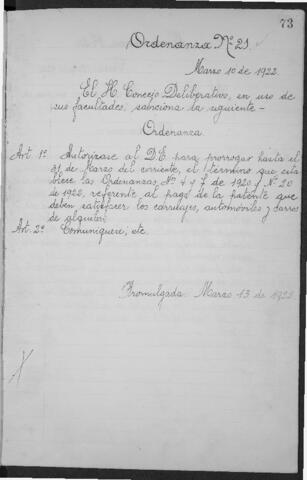 73
Ordenanza Nº 21
Marzo 10 de 1922.
El H. Concejo Deliberativo, en uso de
sus facultades, sanciona la siguiente -
Ordenanza
Art. 1º Autorizase al D.E. para prorrogar hasta el
31 de Marzo del corriente, el termino que esta
blece las Ordenanzas, Nº 4 y 7 de 1920 y Nº 20
de 1922, referente al pago de la patente que
deben satisfacer los carruajes, automóviles y carros
de alquiler.
Art. 2º Comuniquese; etc.
Promulgada Marzo 13 de 1922